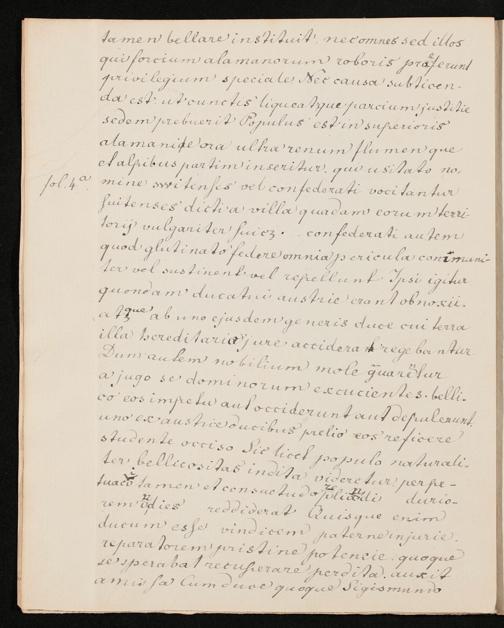 tamen bellare instituit. nec omnes sed illos
qui forcium alamanorum roboris præferunt
privilegium speciale Nec causa subticen-
da est. ut cunctis liqueat que parcium justitie
sedem prebuerit Populus est in superioris
alamanie ora ultra renum flumen que
et alpibus partim inseritur. qui usitato no.
fol. 4ª.
mine switenses vel confederati vocitantur
suitenses dicti a villa quadam eorum terri
torij vulgariter suicz. confederati autem
quod glutinato federe omnia pericula conmuni-
ter vel sustinent vel repellunt Ipsi igitur
quondam ducatui austrie erant obnoxii.
atque ab uno ejusdem generis duce cui terra
illa hereditario jure acciderat regebantur
Dum autem nobilium mole gravaretur
a jugo se dominorum excucientes. belli-
co eos impetu aut occiderunt aut depulerunt,
uno ex austrie ducibus prelio eos reficere
studente occiso Sic licet populo naturali-
ter bellicositas indita videretur perpe-
tamen et consuetudo durio-
rem indies reddiderat Quisque enim
ducum esse vindicem paterne injurie.
reparatorem pristine potencie. quoque
se sperabat recuperare perdita. auxit
amissa Cum duce quoque Sigismundo